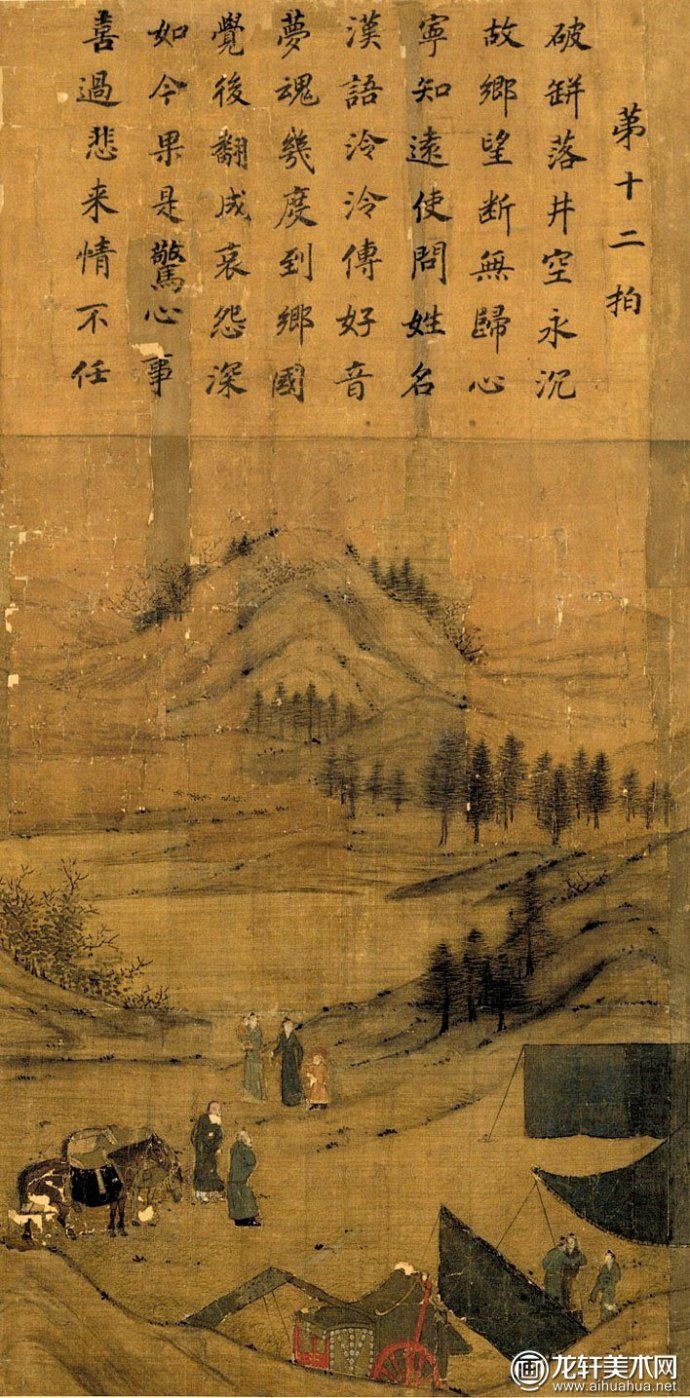 第十二拍
破缾落井空永沉
故鄉望断無歸心
寧知遠使問姓名
漢語泠泠傳好音
夢魂幾度到鄉國
覺後翻成哀怨深
如今果是驚心事
喜過悲来情不任
龙轩美术网
www.aihuahua.net